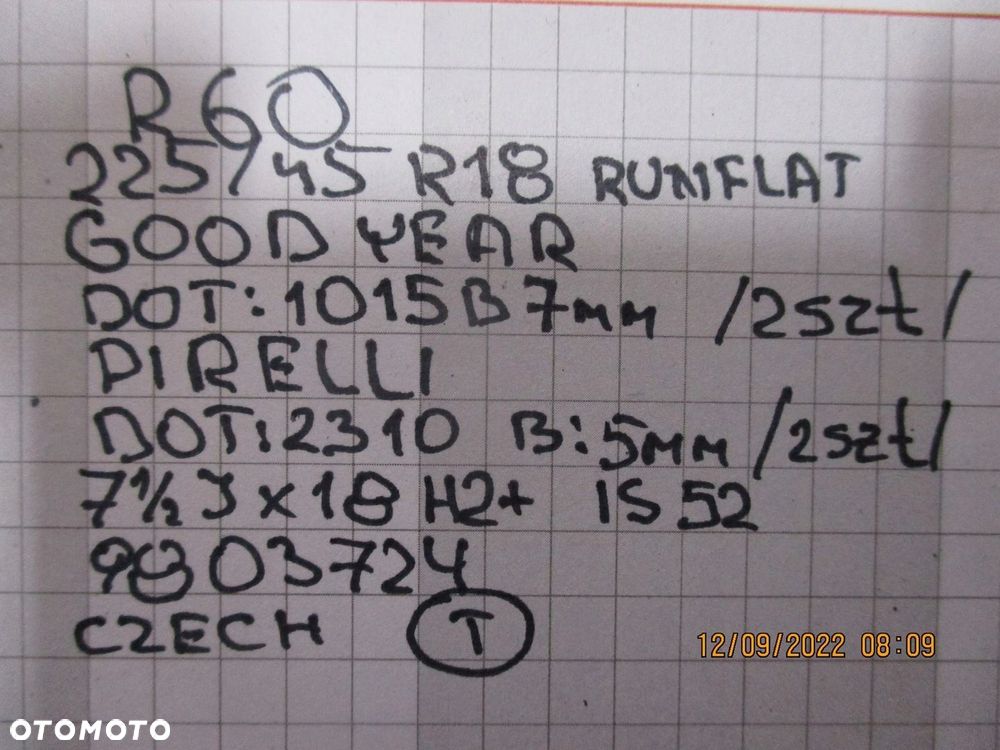 R60
225/45 R18 RUNFLAT
GOOD YEAR
DOT:1015 B 7mm /2szt/
PIRELLI
DOT:2310 B:5mm /2szt/
7½J x 18 H2+ IS 52
9803724
CZECH T
12/09/2022 08:09
OTOMOTO